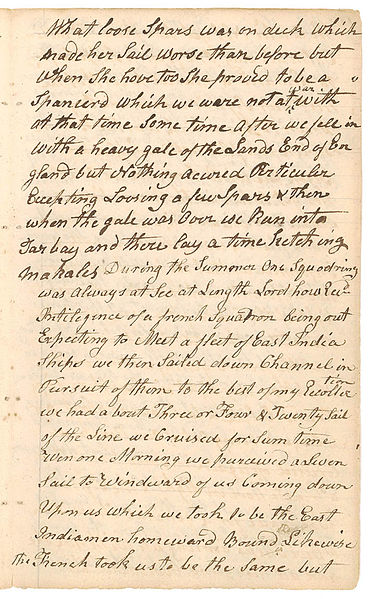 What loose Spars was on deck which
made her Sail worse than before but
when She hove too She proved to be a
Spanierd which we were not at war with
at that time Some time After we fell in
with a heavy gale of the Lands End of En
gland but Nothing acured Perticuler
Excepting Loosing a few Spars & then
when the gale was Oovr we Run into
Tarbay and there lay a time ketching
makales During the Summer One Squodrin
was Always at See at Length Lord how Recd
Intiligence of a french Squadron being out
Expecting to Meet a fleet of East India
Ships we then Sailed down Channel in
Pursuit of them to the best of my Recollec
tion
we had a bout Three or Four & Twenty Sail
of the Line we Cruised for Sum time
one Morning we purceived a Seven
Sail to Windward of us Coming down
Upon us which we took to be the East
Indiamen homeward Bound Likewise
the French took us to be the Same but